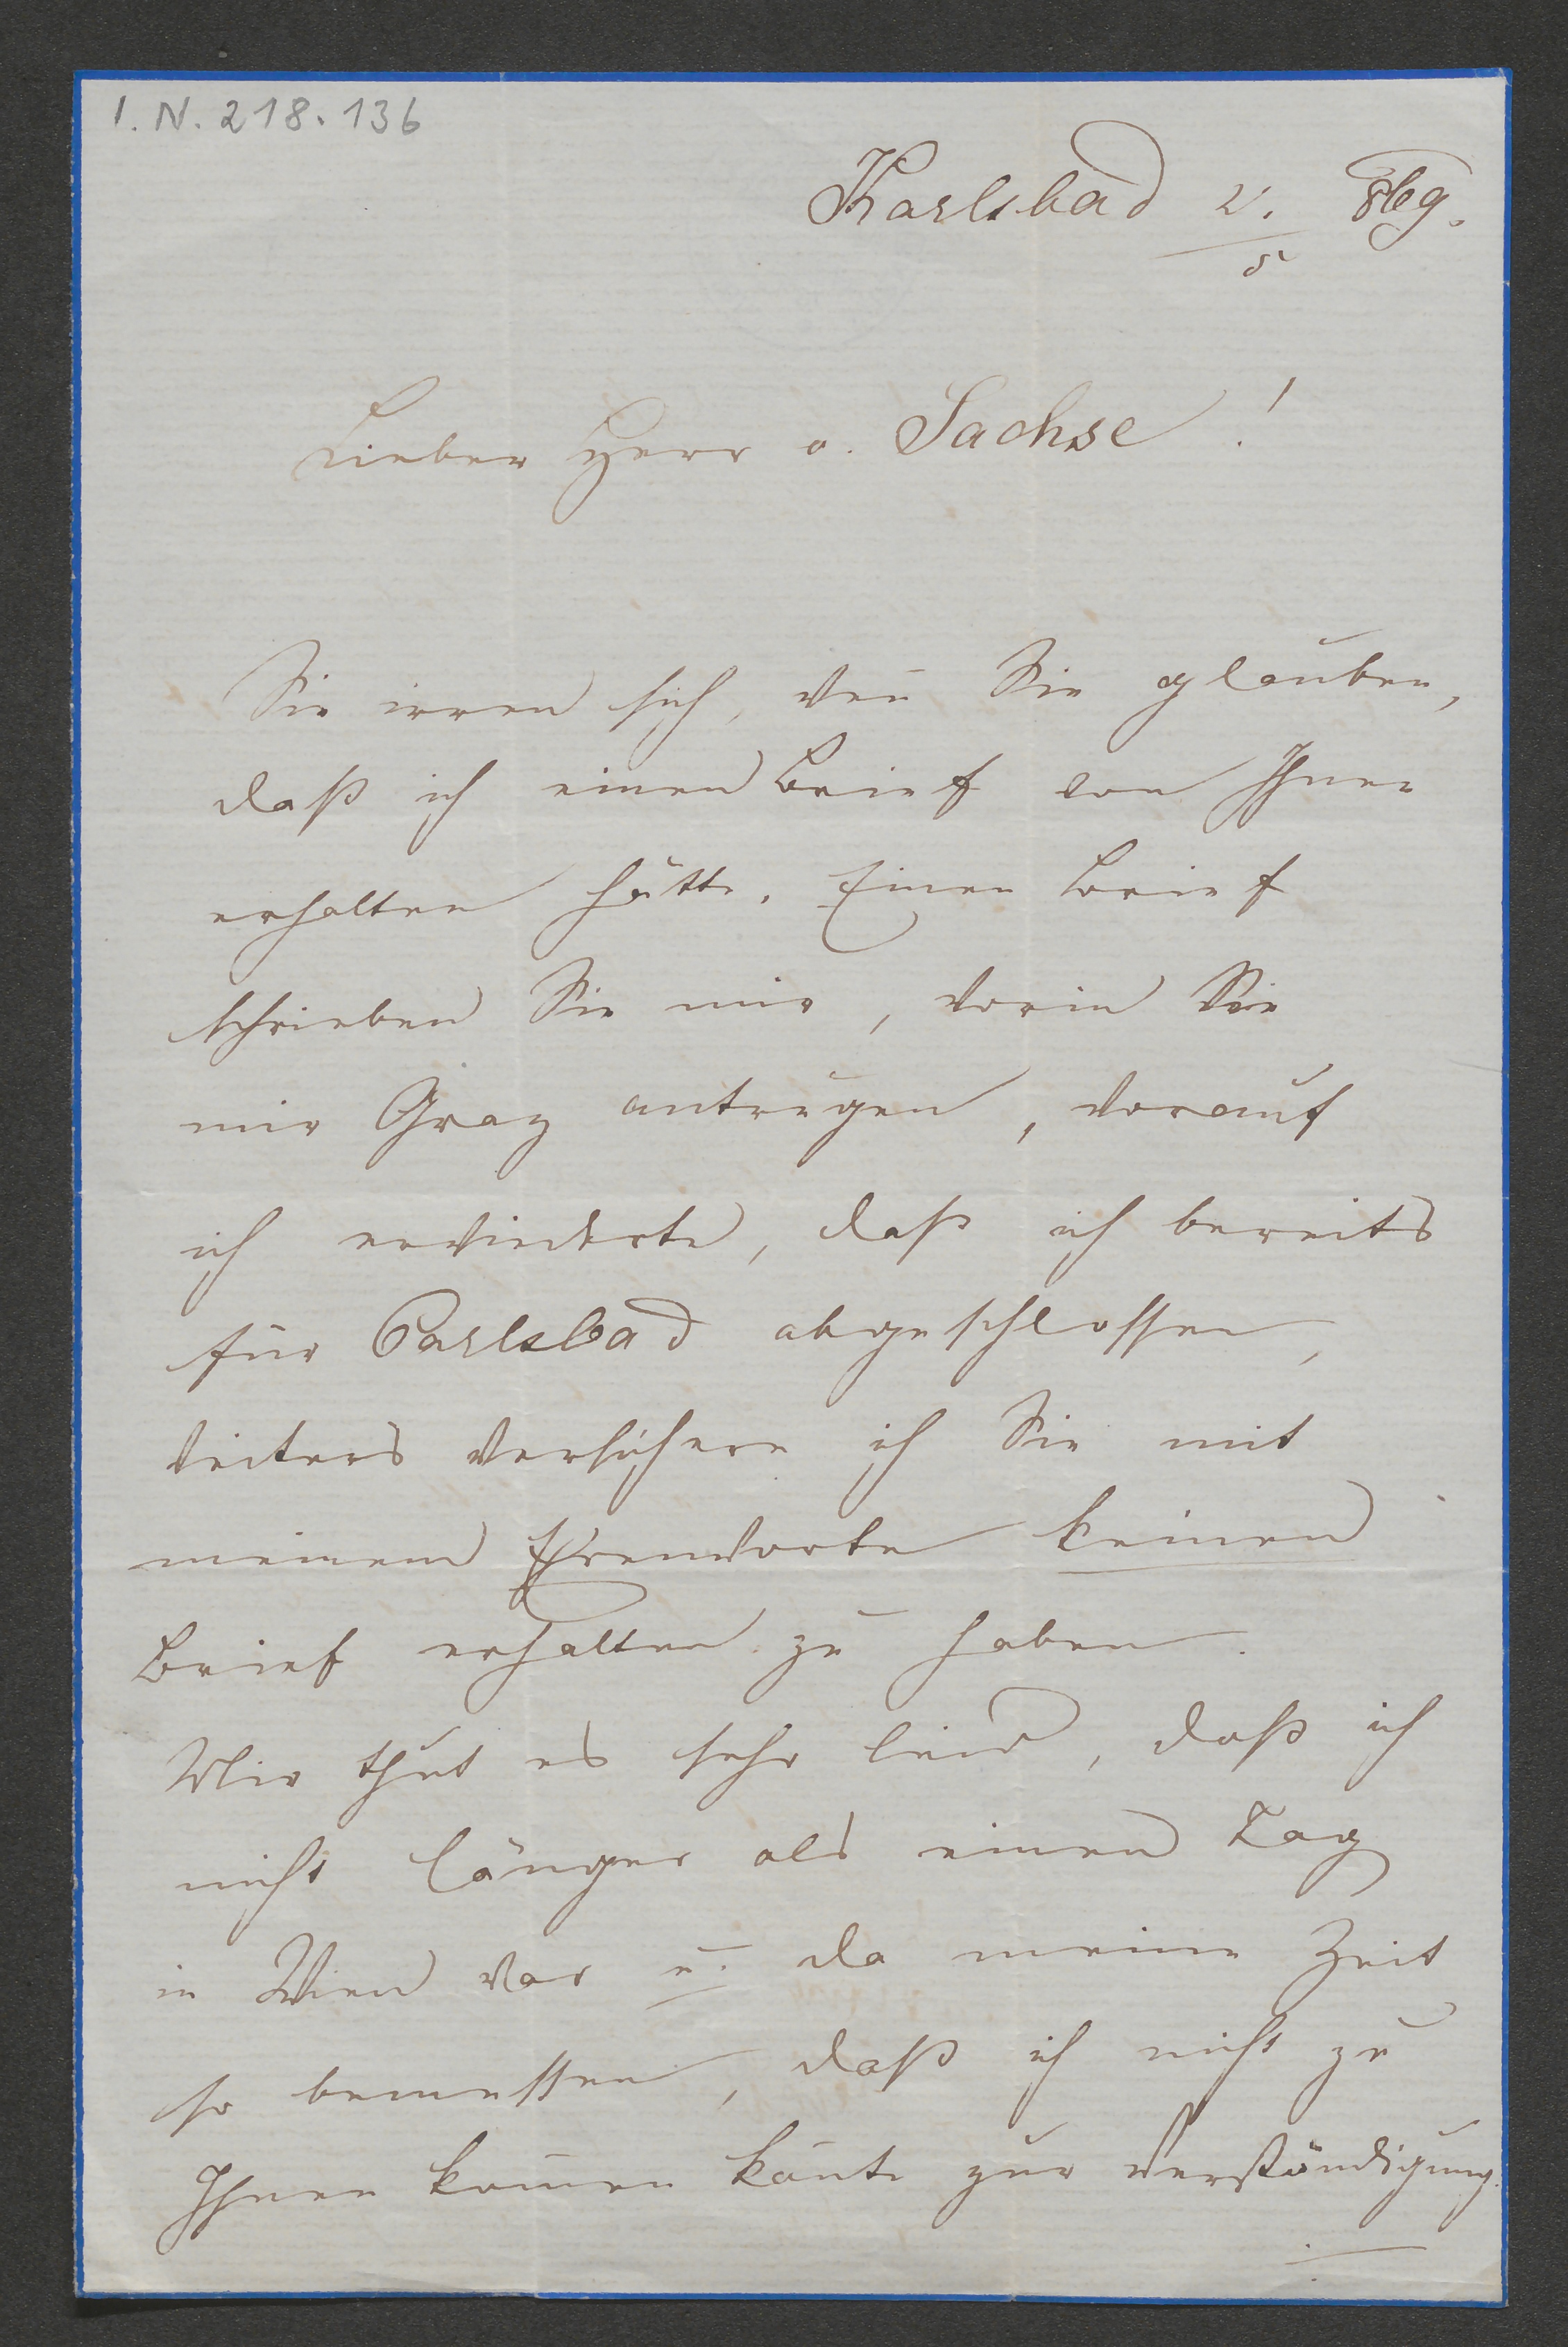 I. N. 218.136
Karlsbad 2/5
Lieber Herr v. Sachse!
Sie irren sich, weñ Sie glauben,
daß ich einen Brief von Ihnen
erhalten hätte. Einen Brief
schrieben Sie mir, worin Sie
mir Graz antrugen, worauf
ich erwiederte, daß ich bereits
für Carlsbad abgeschlossen,
weiters versichere ich Sie mit
meinem Ehrenworte keinen
Brief erhalten zu haben.
Mir thut es sehr leid, daß ich
nicht länger als einen Tag
in Wien war u. da meine Zeit
so bemessen, daß ich nicht zu
Ihnen kom̄en kon̄te zur Verständigung.